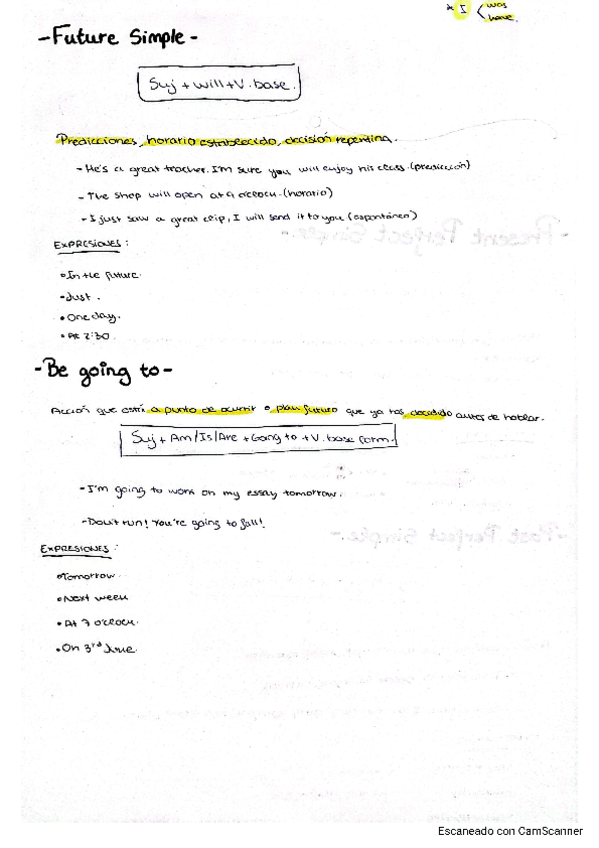 * I < was
have
-Future Simple-
Suj + will + V. base.
Predicciones, horario establecido, decisión repentina.
- He's a great teacher. I'm sure you will enjoy his class. (predicción)
- The shop will open at 9 o'clock. (horario)
- I just saw a great clip, I will send it to you (espontáneo)
EXPRESIONES:
• In the future.
- Just.
• One day.
• At 2:30
-Be going to-
Acción que está a punto de ocurrir o plan futuro que ya has decidido antes de hablar.
Suj + Am/Is/Are + Going to + V. base form.
- I'm going to work on my essay tomorrow.
- Don't run! You're going to fall!
EXPRESIONES:
• Tomorrow.
• Next week
• At 7 o'clock.
• On 3rd June.
-Present Perfect Simple-
-Past Perfect Simple-
Escaneado con CamScanner